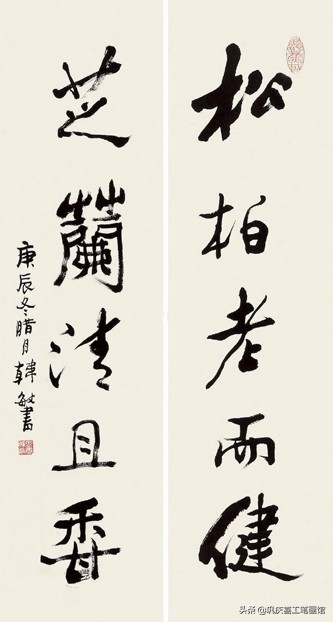 松柏老而健
芝蘭清且香
庚辰冬腊月韓敏書
头条@巩庆喜工笔画馆